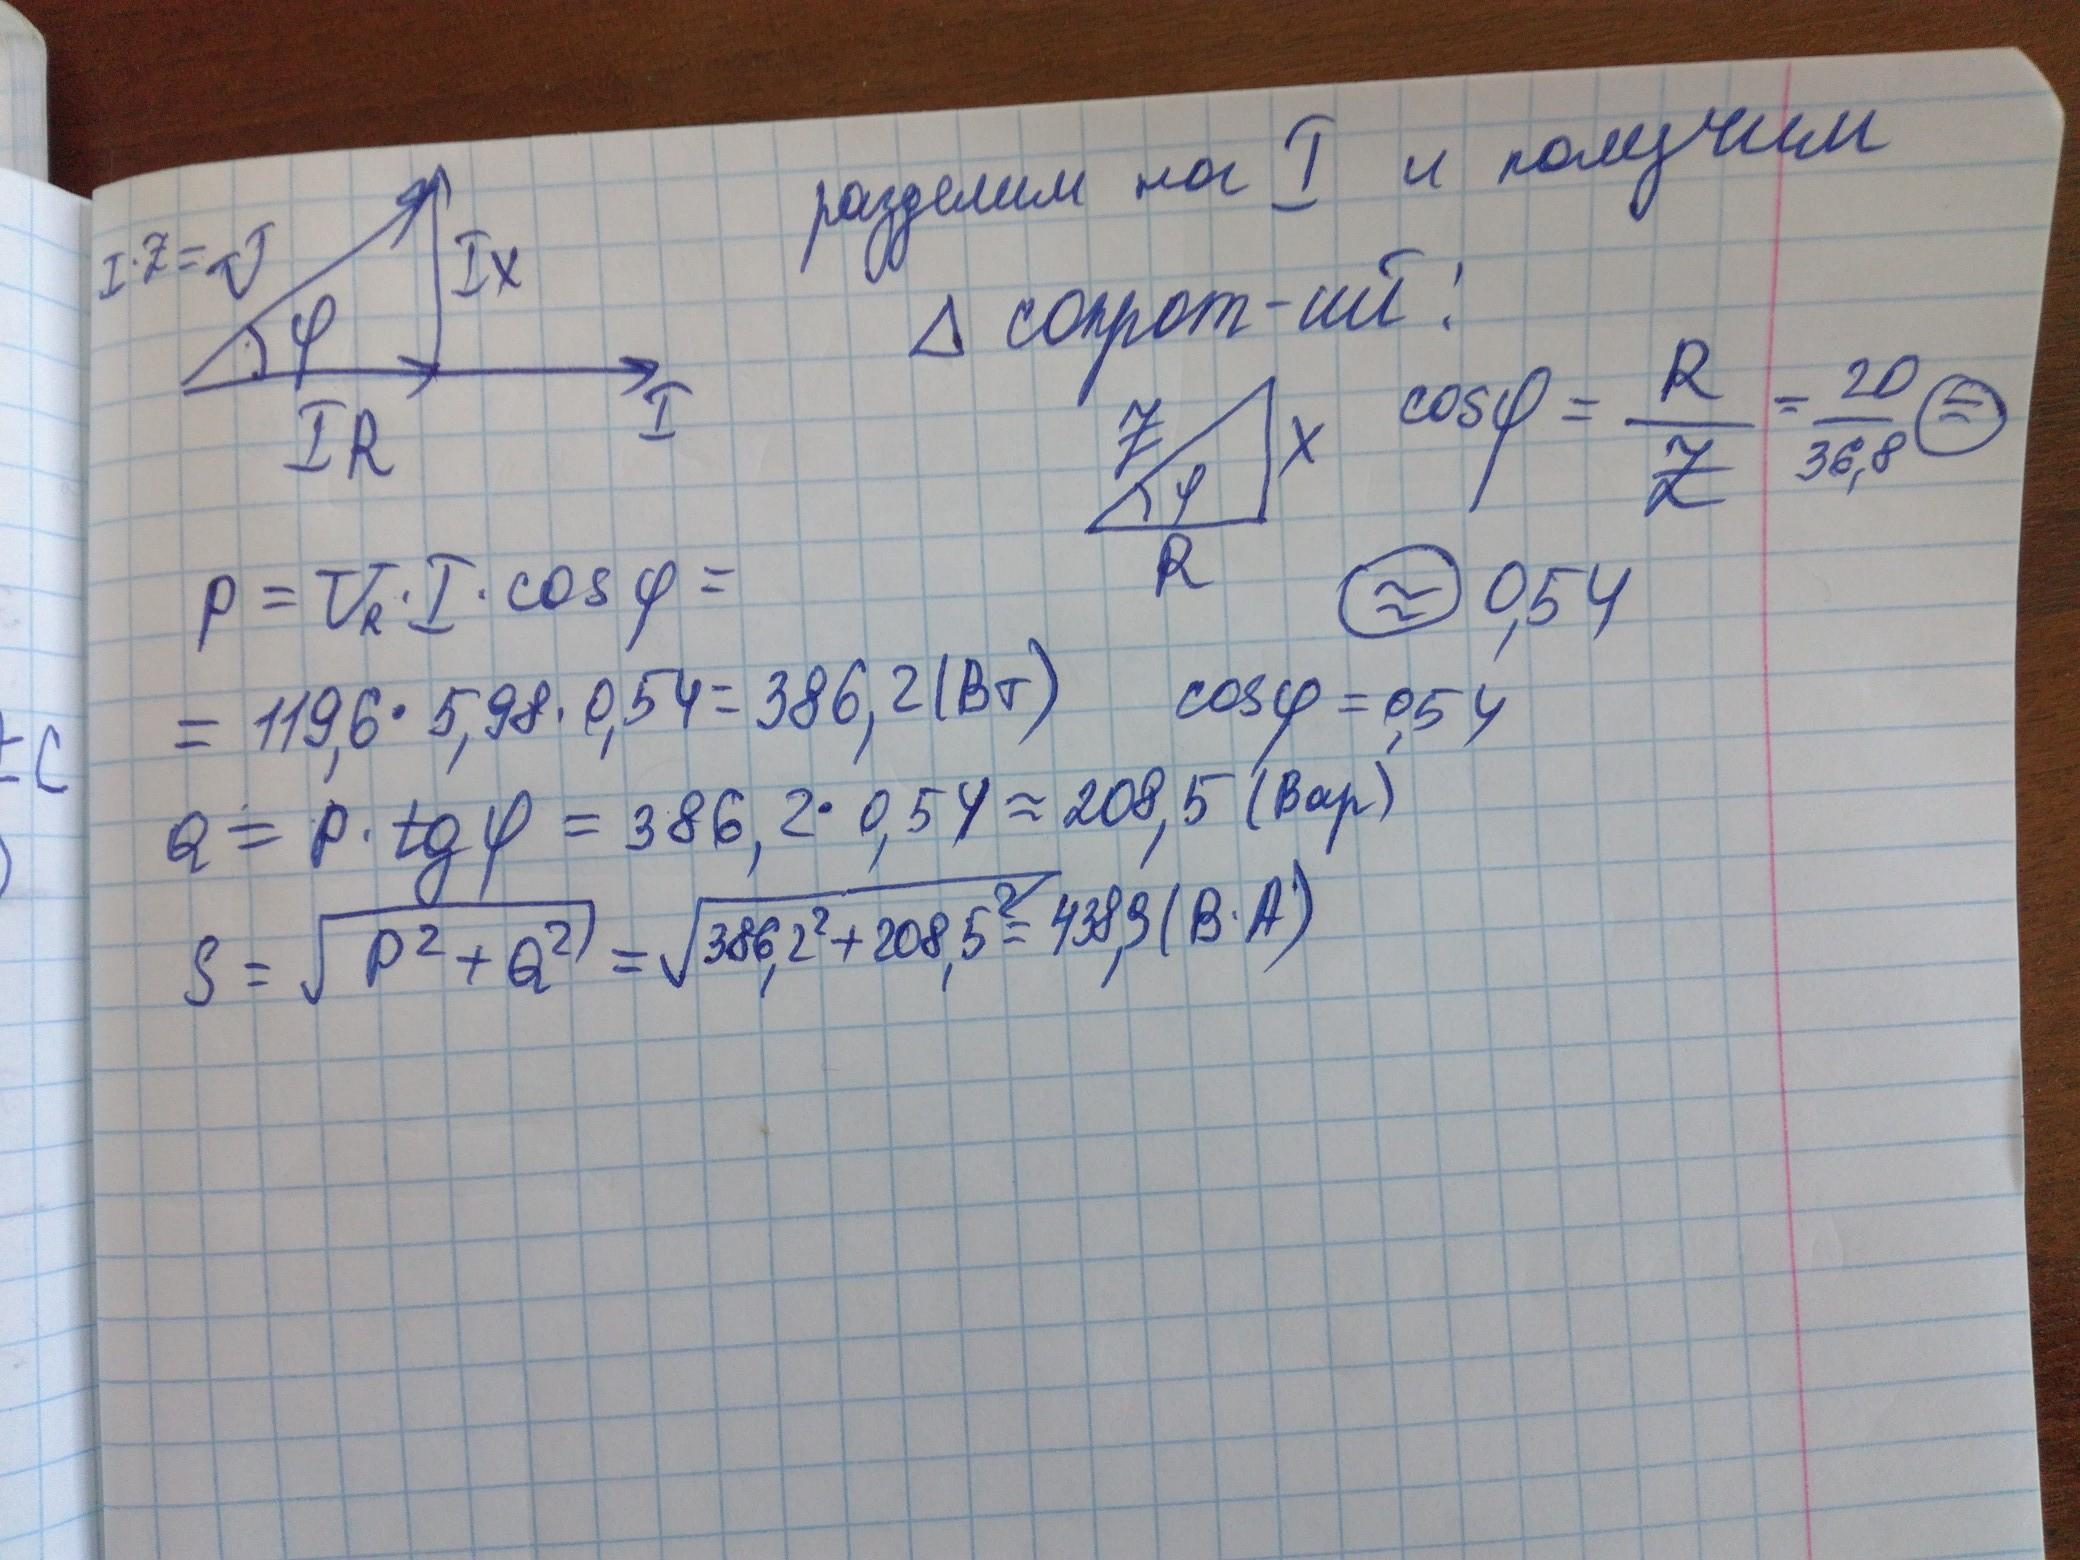 разделим на I и получим
I·Z=U
IX
φ
IR
I
Δ сопрот-ий:
Z
X
φ
R
cosφ = R/Z = 20/36,8 =
≈ 0,54
P = U_R·I·cosφ =
= 119,6·5,98·0,54 = 386,2 (Вт)
cosφ = 0,54
Q = P·tgφ = 386,2·0,54 ≈ 208,5 (Вар)
S = √(P²+Q²) = √(386,2²+208,5²) = 438,9 (В·А)